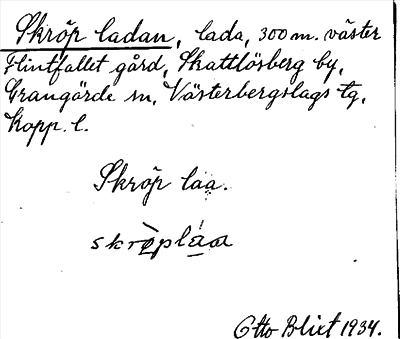 Skröp ladan, lada, 300 m. väster
Flintfallet gård, Skattlösberg by,
Grangärde sn, Västerbergslags tg,
Kopp. l.
Skröp laa.
skrò̱plá̱a
Otto Blixt 1934.